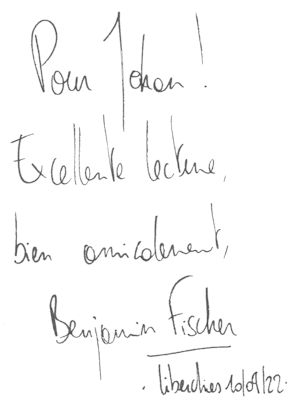 Pour Johan !
Excellente lecture,
bien amicalement,
Benjamin Fischer
Liberchies 10/09/22.